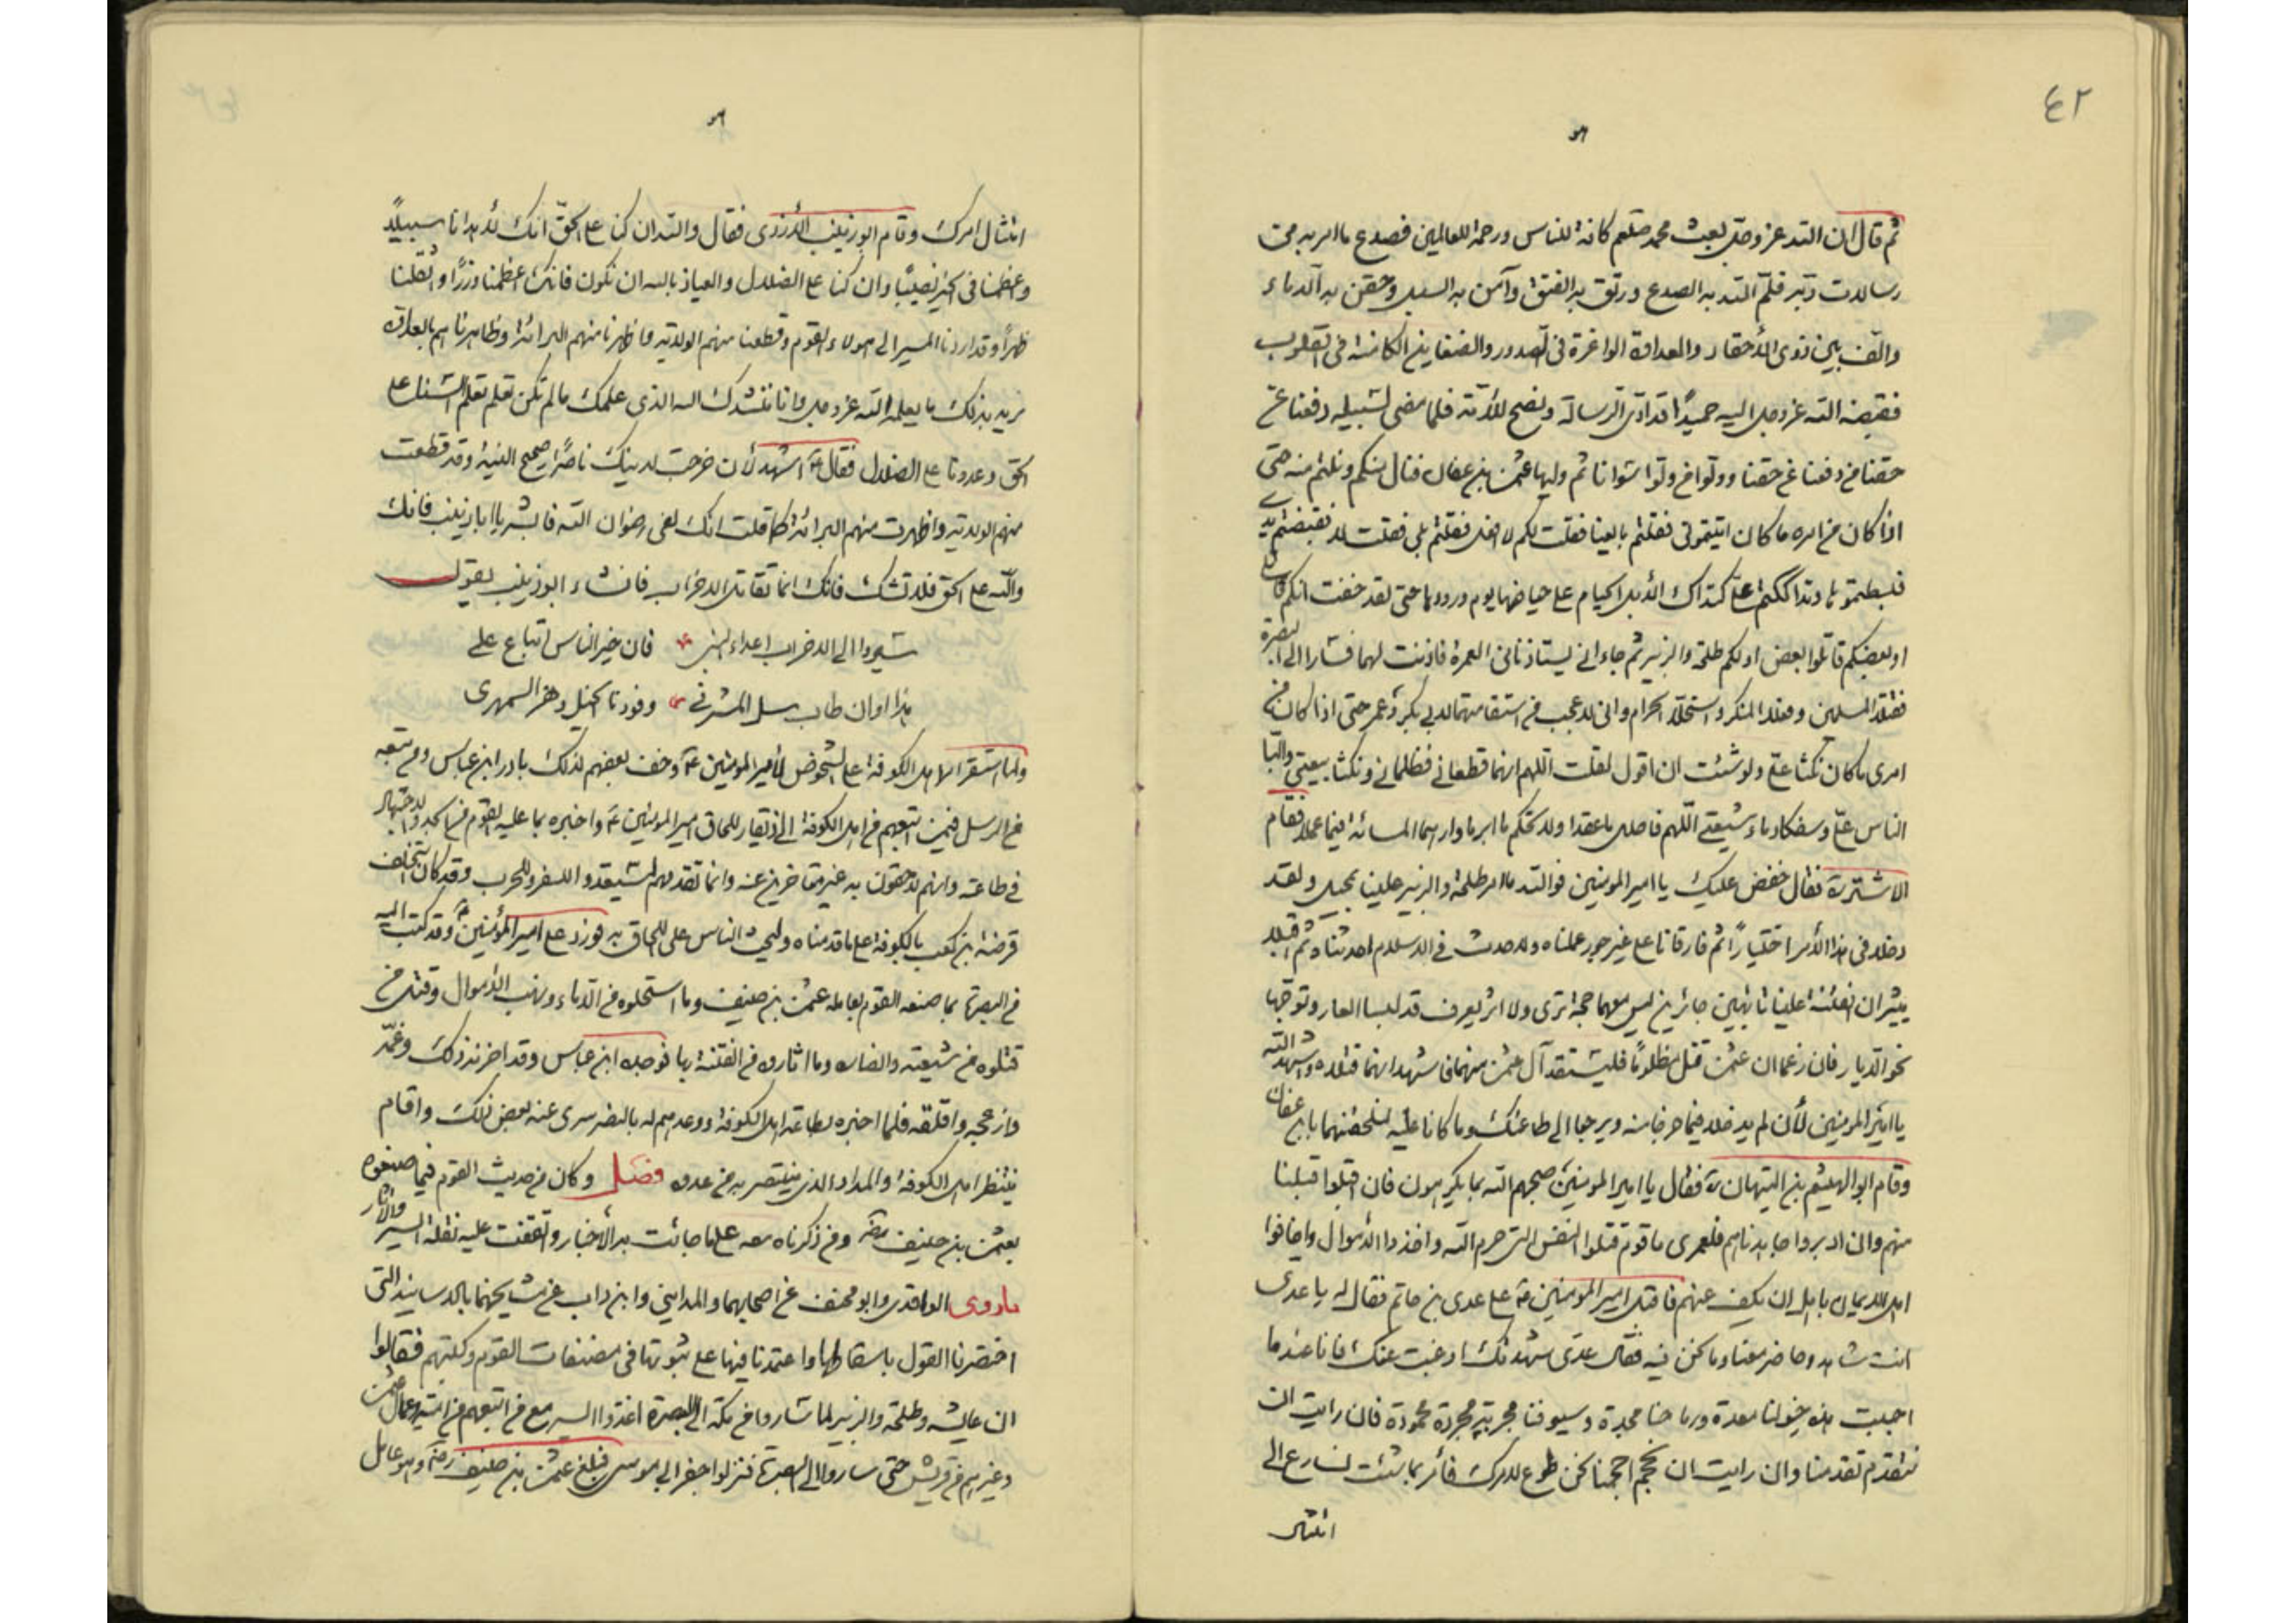 ٤٢
ثم قال ان الله عز وجل بعث محمد صلعم كافة للناس ورحمة للعالمين فصدع ما امر به من
رسالات ربه فلم الله به الصدع ورتق به الفتق وآمن به السبل وحقن به الدماء
والف بين ذوى الأحقاد والعداوة الواغرة فى الصدور والضغاين الكامنة فى القلوب
فقبضه الله عز وجل اليه حميدًا قد ادى الرسالة ونصح للأمة فلما مضى لسبيله دفعنا عن
حقنا من دفعنا عن حقنا وولوا من ولوا سوانا ثم وليها عثمن بن عفان فنال منكم ونلتم منه حتى
اذا كان من امره ما كان اتيتمونى فقلتم بايعنا فقلت لكم لا افعل فقلتم بلى فقلت لا فقبضتم يدى
فبسطتموها وتداككتم على كتداك الأبل الحيام على حياضها يوم ورودها حتى لقد خفت انكم قاتلى
او بعضكم قاتلوا بعض اولكم طلحة والزبير ثم جاءانى يستاذنانى العمرة فاذنت لهما فسارا الى البصرة
فقتلا المسلمين وفعلا المنكر واستحلا الحرام وانى لاعجب من استقامتهما لابى بكر وعمر حتى اذا كان من
امرى ما كان نكثا على ولو شئت ان اقول لقلت اللهم انهما قطعانى فظلمانى ونكثا بيعتى والبا
الناس على وسفكا دماء شيعتى اللهم فاحلل ما عقدا ولا تحكم ما ابرما وارهما المسائة فيما عملا فقام
الاشتر ره فقال خفض عليك يا امير المومنين فوالله ما امر طلحة والزبير علينا بمخيل ولقد
دخلا فى هذا الأمر اختيارًا ثم فارقانا على غير جور عملناه ولا حدث فى الاسلام احدثناه ثم اقبلا
يثيران الفتنة علينا تائهين جائرين ليس معهما حجة ترى ولا اثر يعرف قد لبسا العار وتوجها
نحو الديار فان زعما ان عثمن قتل مظلومًا فليستقد آل عثمن منهما فاشهد انهما قتلاه واشهد الله
يا امير المومنين لأن لم يدخلا فيما خرجا منه ويرجعا الى طاعتك وما كانا عليه لنلحقنهما بابن عفان
وقام ابو الهيثم بن التيهان ره فقال يا امير المومنين صبحهم الله بما يكرهون فان اقبلوا قبلنا
منهم وان ادبروا جاهدناهم فلعمرى ما قوم قتلوا النفس التى حرم الله واخذوا الأموال واخافوا
اهل الايمان باهل ان يكف عنهم فاقبل امير المومنين ع على عدى بن حاتم فقال له يا عدى
انت شاهد وحاضر معنا وما نحن فيه فقال عدى شهدتك او غبت عنك فانا عند ما
احببت هذه خيولنا معدة ورماحنا محددة وسيوفنا مجربة مجردة محمودة فان رايت ان
نتقدم تقدمنا وان رايت ان نحجم احجمنا نحن طوع لامرك فأمر بما شئت نسارع الى
امتثال
امتثال امرك وقام ابو زينب الأزدى فقال والله ان كنا على الحق انك لأهدانا سبيلًا
واعظمنا فى الخير نصيبًا وان كنا على الضلال والعياذ بالله ان نكون فانك اعظمنا وزرًا واثقلنا
ظهرًا وقد اردنا المسير الى هولاء القوم وقطعنا منهم الولاية واظهرنا منهم البرائة وظاهرناهم بالعداوة
نريد بذلك ما يعلمه الله عز وجل وانا ننشدك الله الذى علمك ما لم تكن تعلم السنا على
الحق وعدونا على الضلال فقال ع اشهد لأن خرجت لدينك ناصرًا صحيح النية وقد قطعت
منهم الولاية واظهرت منهم البرائة كما قلت انك لفى رضوان الله فابشر يا ابا زينب فانك
والله على الحق فلا تشك فانك انما تقاتل الاحزاب فانشاء ابو زينب يقول
سيروا الى الاحزاب اعداء النبى فان خير الناس اتباع على
هذا اوان طاب سل المشرفى وقودنا الخيل وهز السمهرى
ولما استقر امر اهل الكوفة على النهوض لأمير المومنين ع وخف بعضهم لذلك بادر ابن عباس ومن معه
من الرسل فيمن اتبعهم من اهل الكوفة الى ذى قار للحاق امير المومنين ع واخبره بما عليه القوم من الجد والاجتهاد
فى طاعته وانهم لاحقون به غير متاخرين عنه وانما تقدمهم ليستعدوا للسفر وللحرب وقد كان استخلف
قرضة بن كعب بالكوفة على ما قدمناه وليحث الناس على اللحاق به فورد على امير المؤمنين ع وقد كتب اليه
من البصرة بما صنعه القوم بعامله عثمن بن حنيف وما استحلوه من الدماء ونهب الأموال وقتل من
قتلوه من شيعته وانصاره وما اثاروه من الفتنة بها فوجده ابن عباس وقد احزنه ذلك وغمه
وازعجه واقلقه فلما اخبره بطاعة اهل الكوفة ووعدهم له بالنصر سرى عنه بعض ذلك واقام
ينتظر اهل الكوفة والمداد الذى ينتصر به من عدوه فصل وكان من حديث القوم فيما صنعوه
بعثمن بن حنيف ره ومن ذكرناه معه على ما جائت به الأخبار واتفقت عليه نقلة السير والآثار
ما روى الواقدى وابو مخنف عن اصحابهما والمداينى وابن داب عن مشايخهما بالاسانيد التى
اختصرنا القول باسقاطها واعتمدنا فيها على ثبوتها فى مصنفات القوم وكتبهم فقالوا
ان عايشة وطلحة والزبير لما ساروا من مكة الى البصرة اغذوا السير مع من اتبعهم من بنى امية وعمال عثمن
وغيرهم من قريش حتى ساروا الى البصرة فنزلوا حفر ابى موسى فبلغ عثمن بن حنيف ره وهو عامل